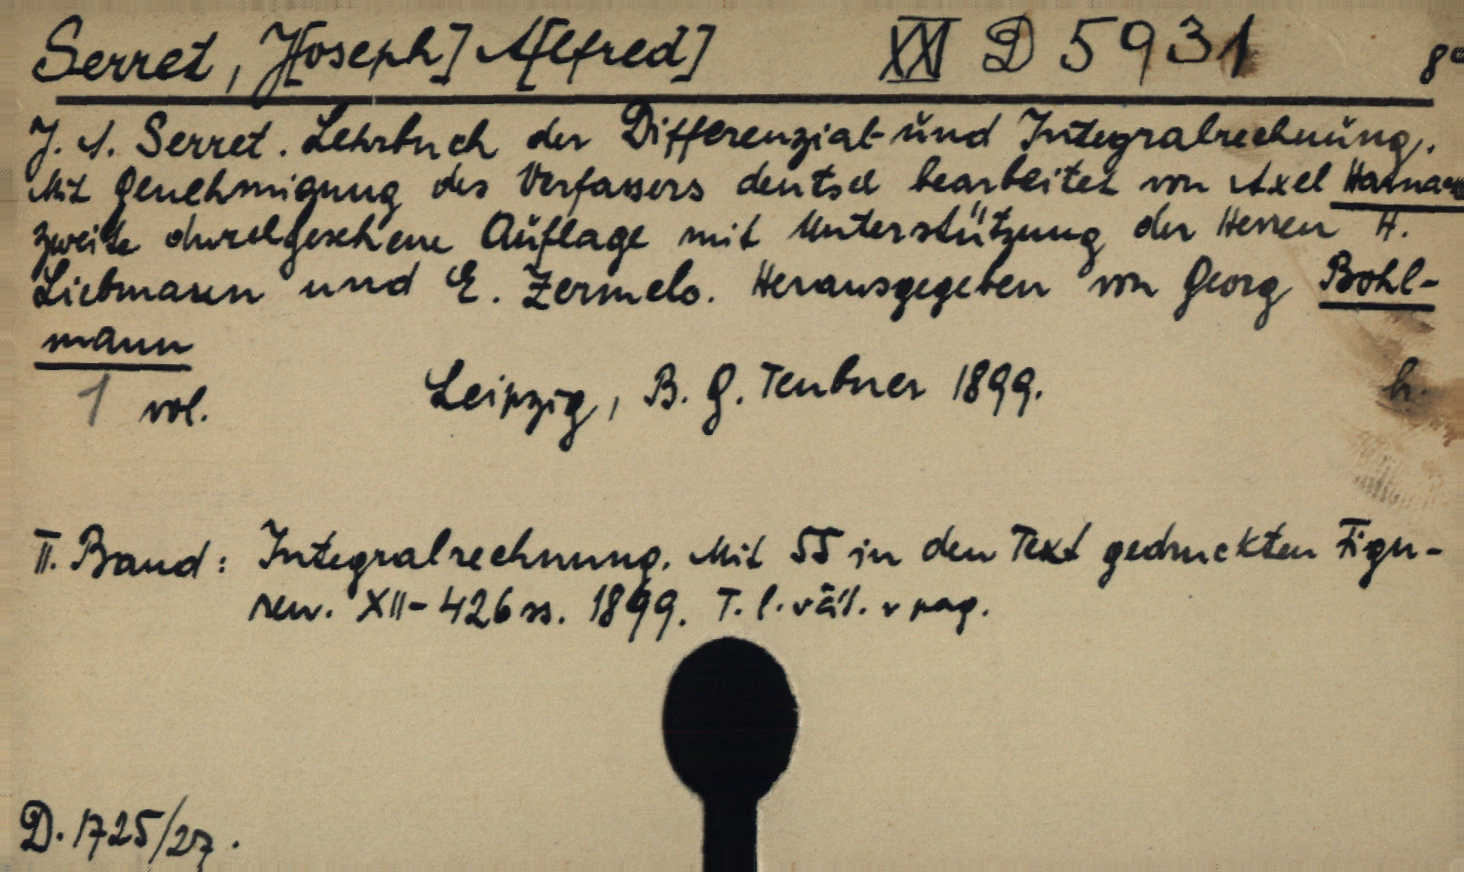 Serret, J[oseph] A[lfred] XXI D 5931 8°
J. A. Serret. Lehrbuch der Differenzial- und Integralrechnung.
Mit Genehmigung des Verfassers deutsch bearbeitet von Axel Harnack
zweite durchgesehene Auflage mit Unterstützung der Herren H.
Liebmann und E. Zermelo. Herausgegeben von Georg Bohl-
mann
1 vol. Leipzig, B. G. Teubner 1899. h.
II. Band: Integralrechnung. Mit 55 in den Text gedruckten Figu-
ren. XII-426 ss. 1899. T. l. v pag.
D. 1725/27.